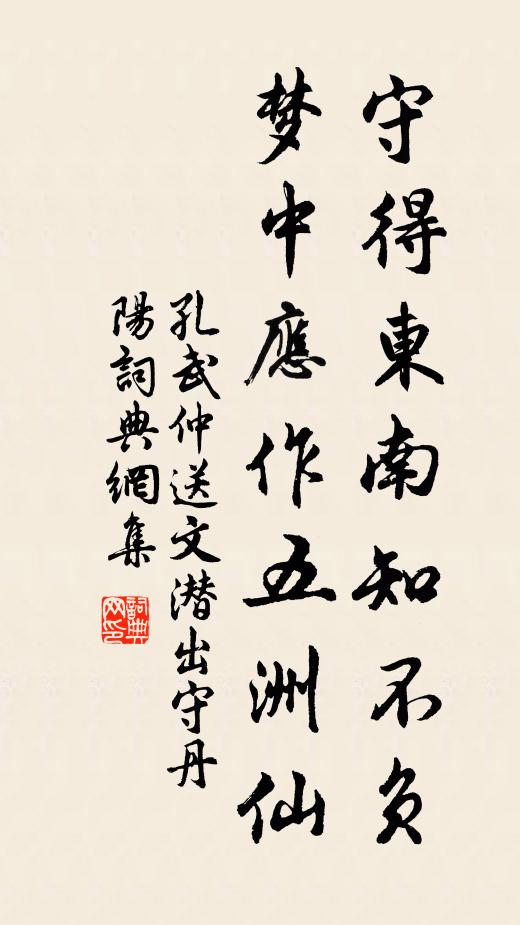 守得東南知不负
梦中應作五洲仙
孔武仲送文潜出守丹
陽詞典網集
詞典网印